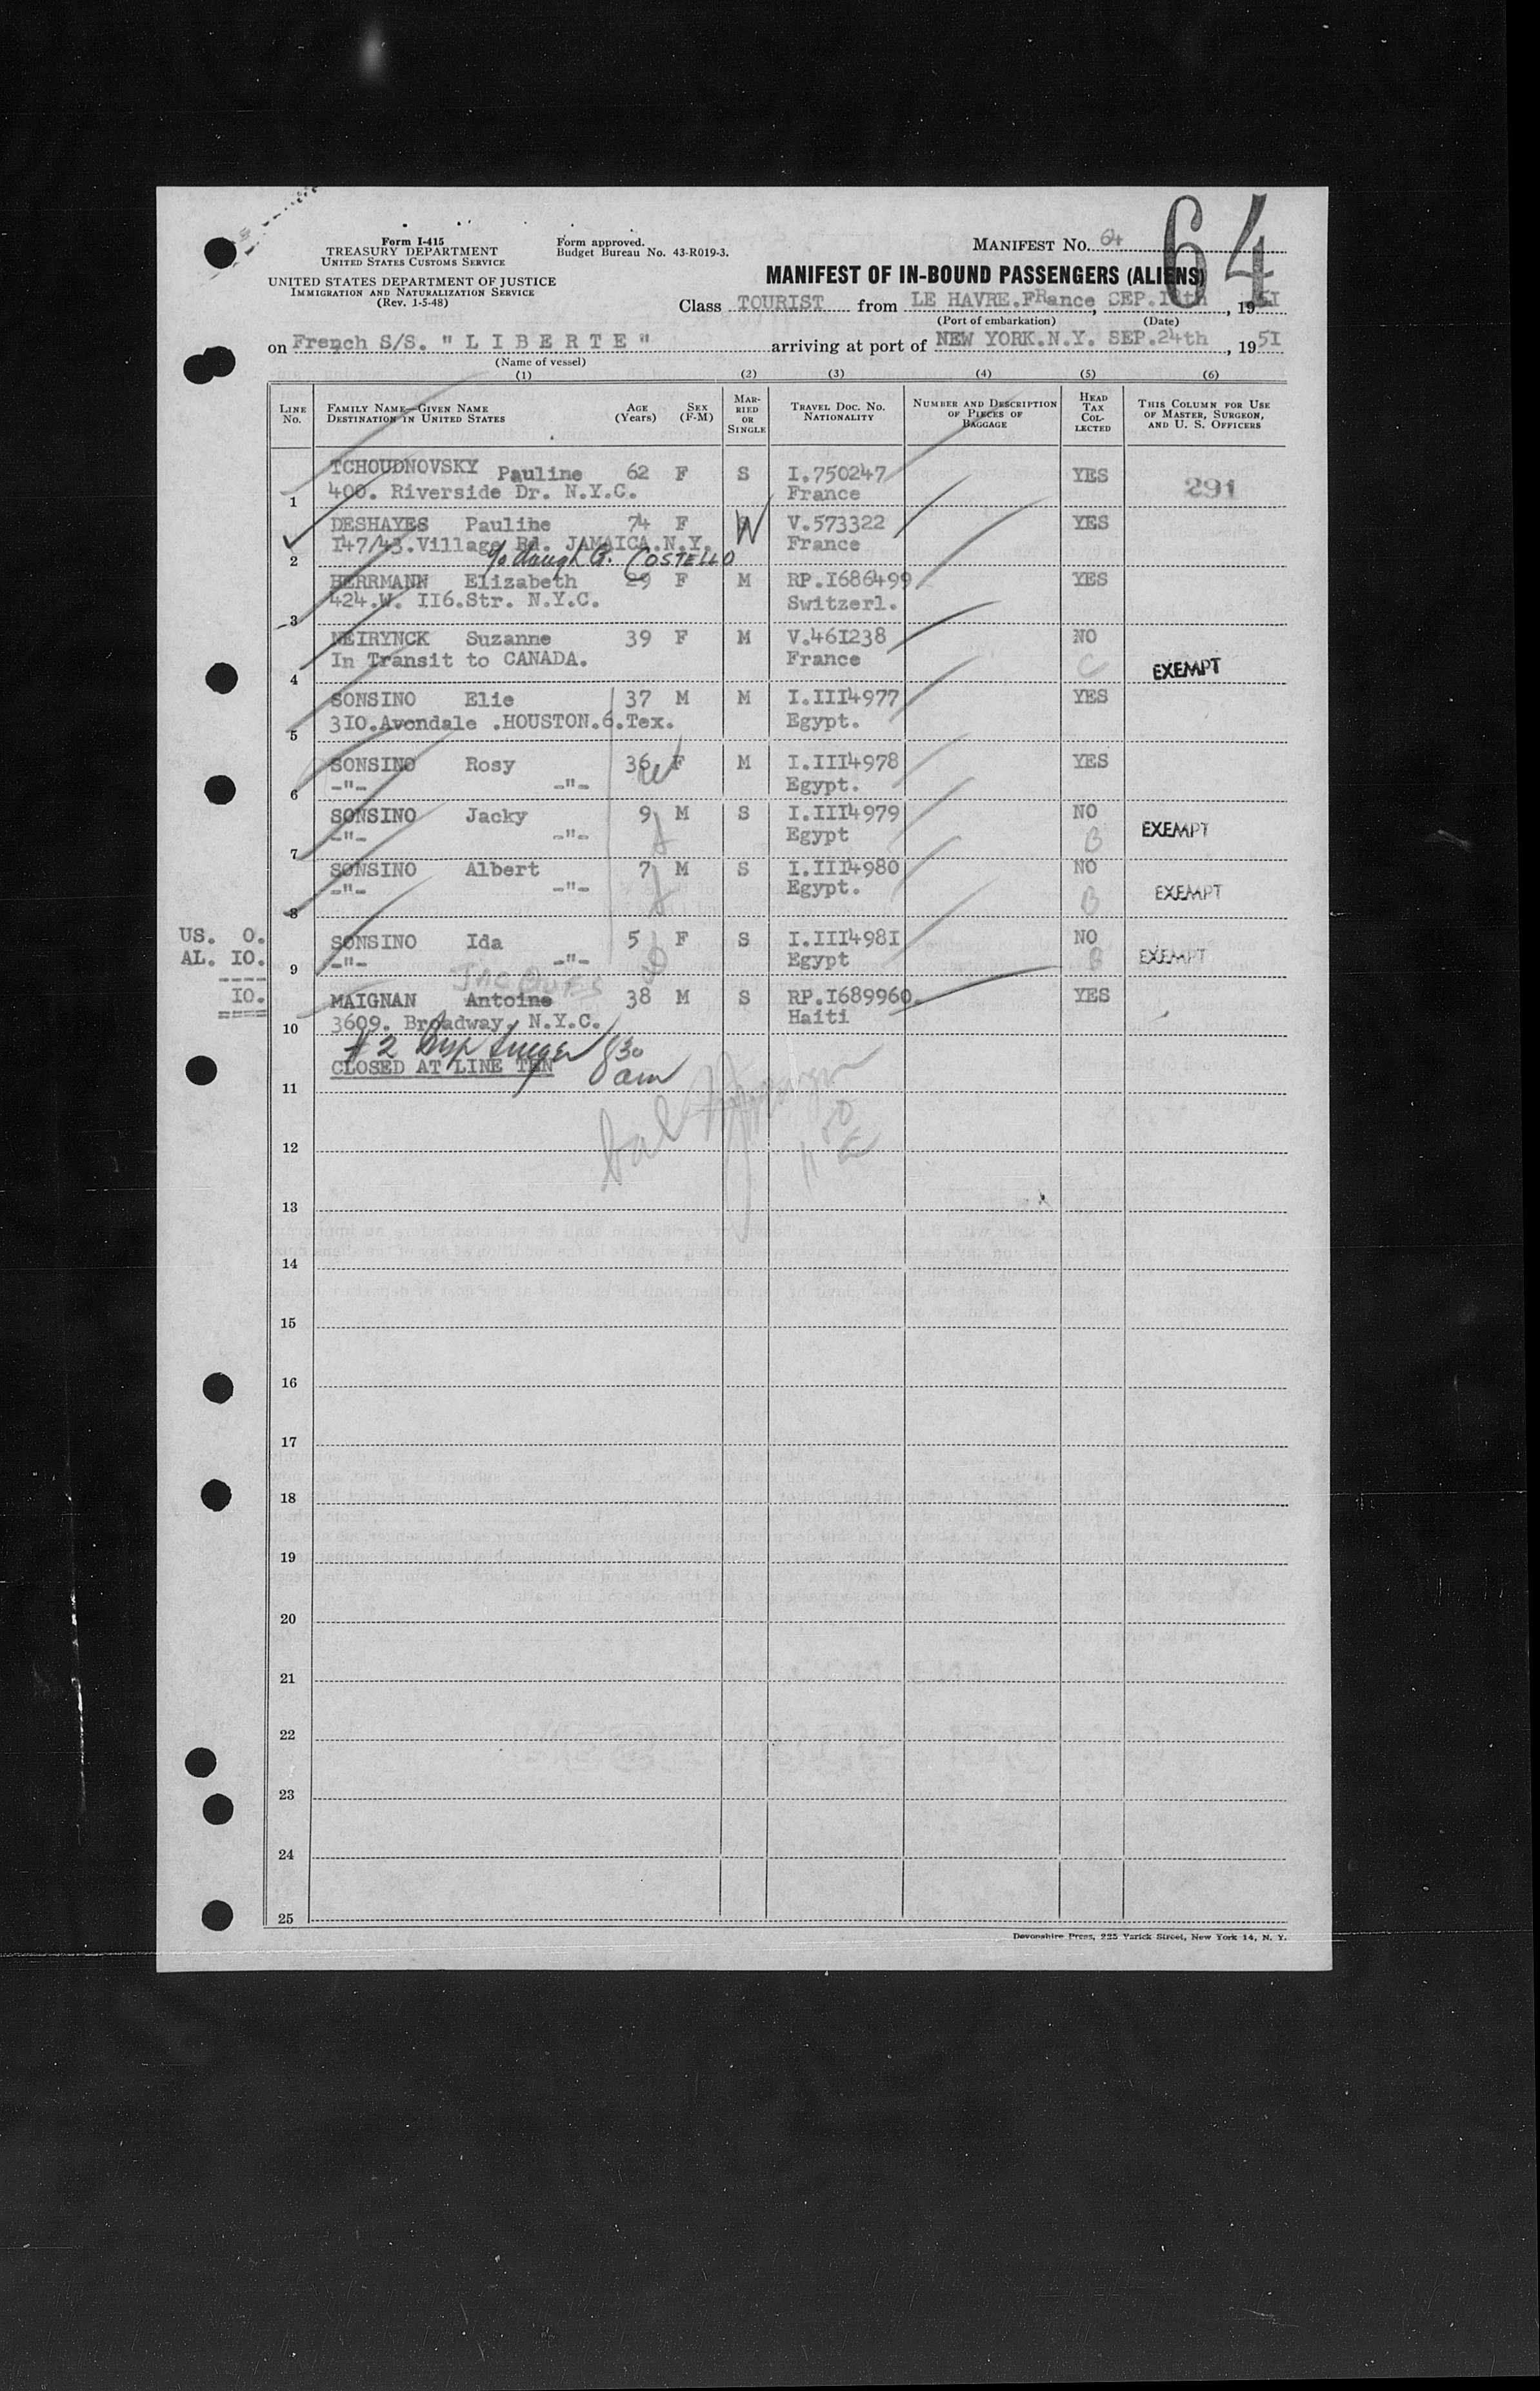 64
Form I-415
TREASURY DEPARTMENT
UNITED STATES CUSTOMS SERVICE
Form approved.
Budget Bureau No. 43-R019-3.
MANIFEST No. 64
UNITED STATES DEPARTMENT OF JUSTICE
IMMIGRATION AND NATURALIZATION SERVICE
(Rev. 1-5-48)
MANIFEST OF IN-BOUND PASSENGERS (ALIENS)
Class TOURIST from LE HAVRE.FRance, SEP. , 1951
(Port of embarkation) (Date)
on French S/S. " L I B E R T E " arriving at port of NEW YORK.N.Y. SEP.24th, 1951
(Name of vessel)
(1) (2) (3) (4) (5) (6)
LINE No. FAMILY NAME—GIVEN NAME DESTINATION IN UNITED STATES AGE (Years) SEX (F-M) MARRIED OR SINGLE TRAVEL DOC. NO. NATIONALITY NUMBER AND DESCRIPTION OF PIECES OF BAGGAGE HEAD TAX COLLECTED THIS COLUMN FOR USE OF MASTER, SURGEON, AND U. S. OFFICERS
TCHOUDNOVSKY Pauline 62 F S I.750247 YES 291
1 400. Riverside Dr. N.Y.C. France
DESHAYES Pauline 74 F W V.573322 YES
147/43.Village Rd. JAMAICA.N.Y. France
2 c/o daugh G. COSTELLO
HERRMANN Elizabeth 29 F M RP.I686499 YES
424.W. II6.Str. N.Y.C. Switzerl.
3
NEIRYNCK Suzanne 39 F M V.46I238 NO
In Transit to CANADA. France C EXEMPT
4
SONSINO Elie 37 M M I.III4977 YES
3I0.Avondale .HOUSTON.6.Tex. Egypt.
5
SONSINO Rosy 36 F M I.III4978 YES
6 -"- -"- Egypt.
SONSINO Jacky 9 M S I.III4979 NO
7 -"- -"- Egypt B EXEMPT
SONSINO Albert 7 M S I.III4980 NO
8 -"- -"- Egypt. B EXEMPT
US. 0.
SONSINO Ida 5 F S I.III498I NO
AL. I0.
9 -"- -"- Egypt B EXEMPT
----
JACQUES
I0.
====
MAIGNAN Antoine 38 M S RP.I689960. YES
10 3609. Broadway. N.Y.C. Haiti
#2 8 30 am
CLOSED AT LINE TEN
11
12
13
14
15
16
17
18
19
20
21
22
23
24
25
Devonshire Press, 225 Varick Street, New York 14, N. Y.